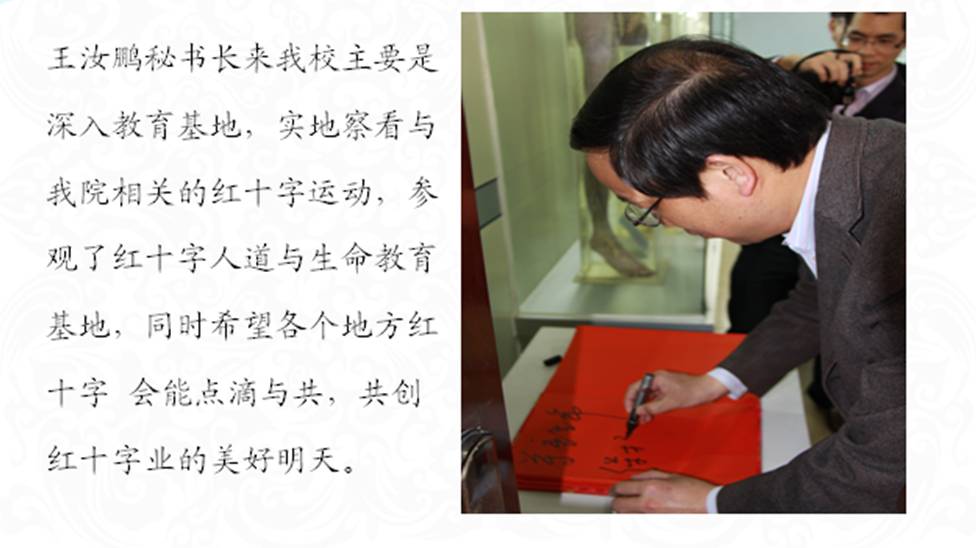 王汝鹏秘书长来我校主要是
深入教育基地，实地察看与
我院相关的红十字运动，参
观了红十字人道与生命教育
基地，同时希望各个地方红
十字 会能点滴与共，共创
红十字业的美好明天。